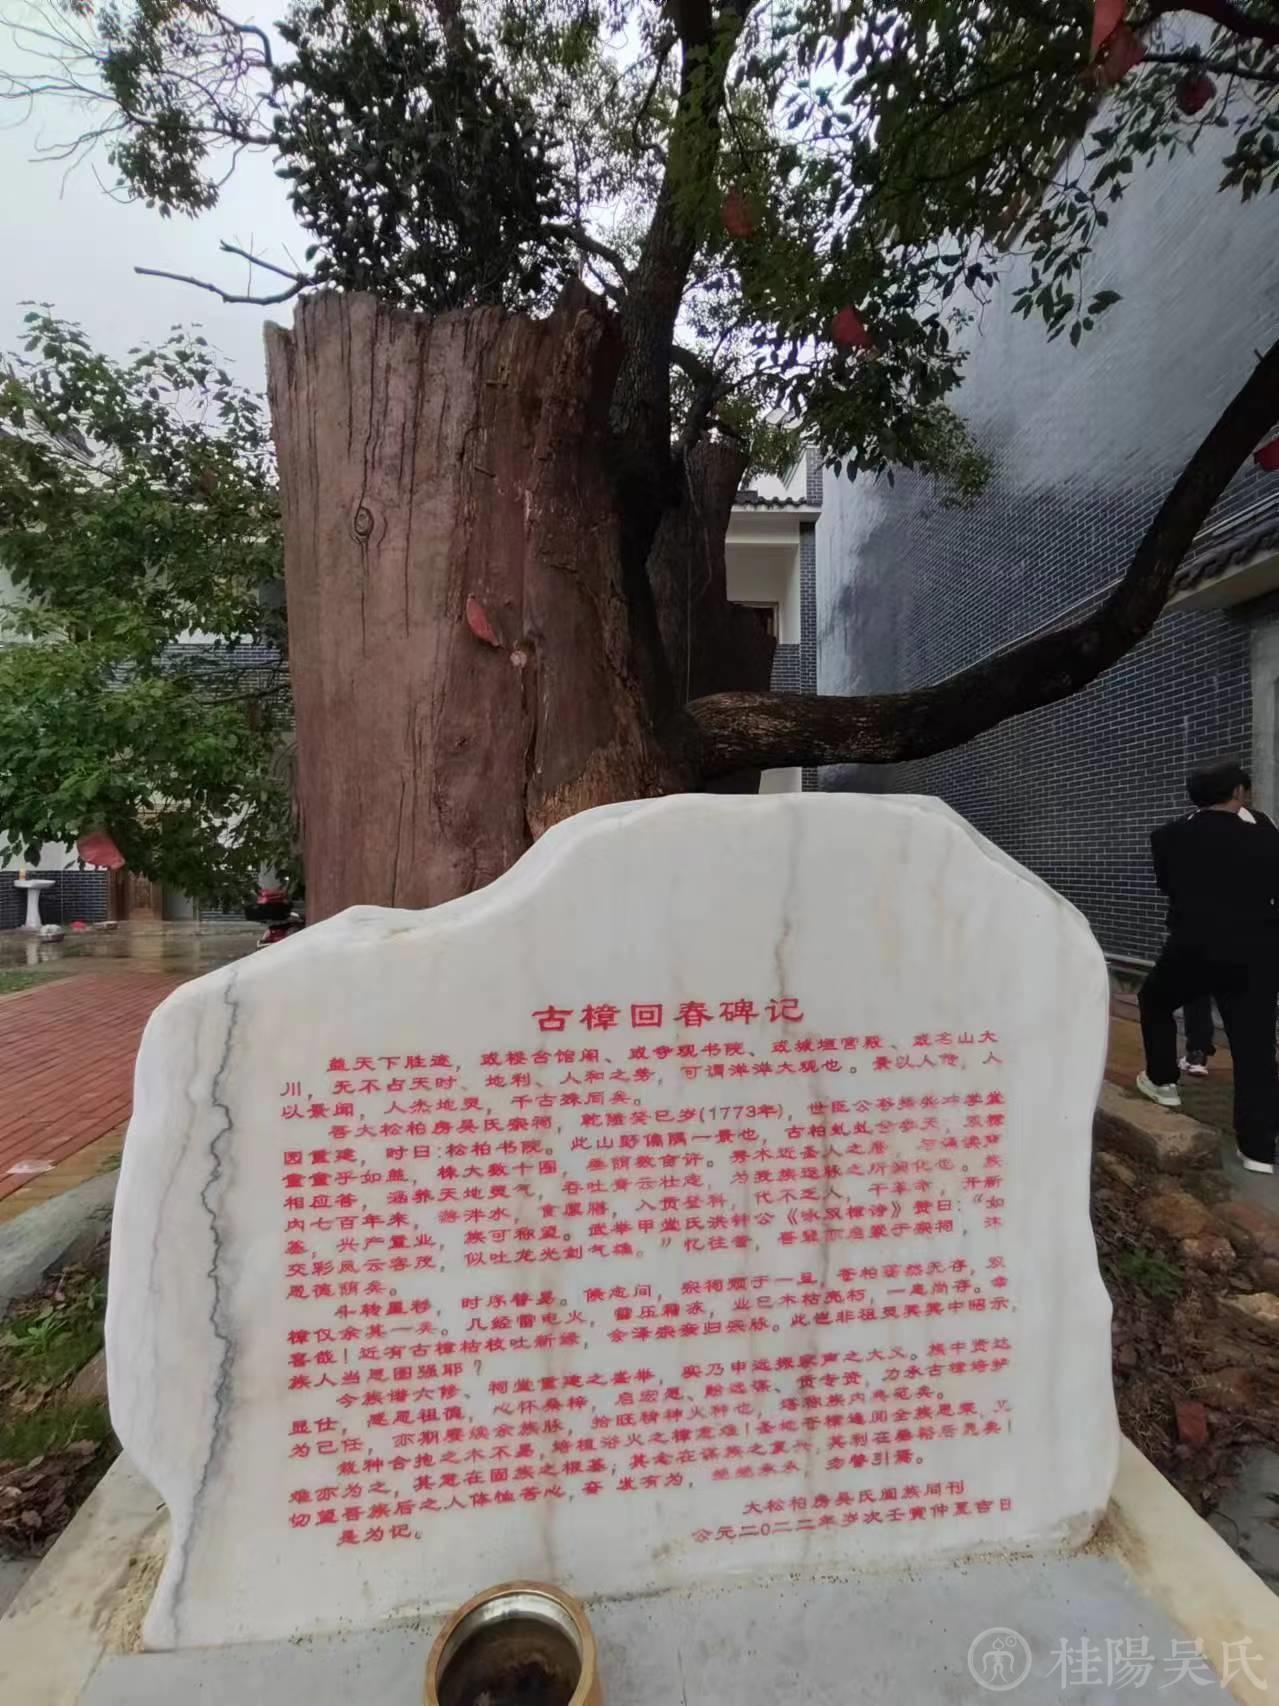 古樟回春碑记
盖天下胜迹，或楼台馆阁、或寺观书院、或城垣宫殿、或名山大
川，无不占天时、地利、人和之势，可谓洋洋大观也。景以人传，人
以景闻，人杰地灵，千古殊同矣。
吾大松柏房吴氏宗祠，乾隆癸巳岁(1773年)，世臣公
园重建，时曰:松柏书院。此山野偏隅一景也，古柏虬虬兮参天，双樟
重重乎如盖，株大数十围，垂荫数亩许。秀木近圣人之居，与诵读声
相应答，涵养天地灵气，吞吐霄云壮志，为我族运脉之所润化也。族
内七百年来，游泮水，食廪膳，入贡登科，代不乏人，干革命，开新
基，兴产置业，族可称望。武举甲堂氏洪钟公《咏双樟诗》赞曰："如
交彩凤云容茂，似吐龙光剑气雄。"忆往昔，吾辈亦启蒙于宗祠，沐
恩德荫矣。
斗转星移，时序替晏。倏忽间，宗祠颓于一旦，苍柏荡然无存，双
樟仅余其一矣。几经雷电火，雪压霜冻，业已木枯壳朽，一息尚存。幸
喜哉！近有古樟枯枝吐新绿，余泽宗亲归宗脉。此岂非祖灵冥冥中昭示，
族人当思图强耶？
今族谱六修、祠堂重建之盛举，实乃申远振家声之大义。族中贤达
显仕，感恩祖德，心怀桑梓，启宏愿、贻远谋、贡专资，力承古樟培护
为己任，亦期赓续宗族脉，拾旺精神火种也，堪称族内典范矣。
栽种合抱之木不易，培植浴火之樟尤难！圣地古樟逢闻全族恩泉，
难亦为之，其意在固族之根基，其志在谋族之复兴，其利在垂裕后昆矣！
切望吾族后之人体恤苦心，奋发有为，继继承承，勿替引焉。
是为记。
大松柏房吴氏阖族同刊
公元二〇二二年岁次壬寅仲夏吉日
桂陽吴氏